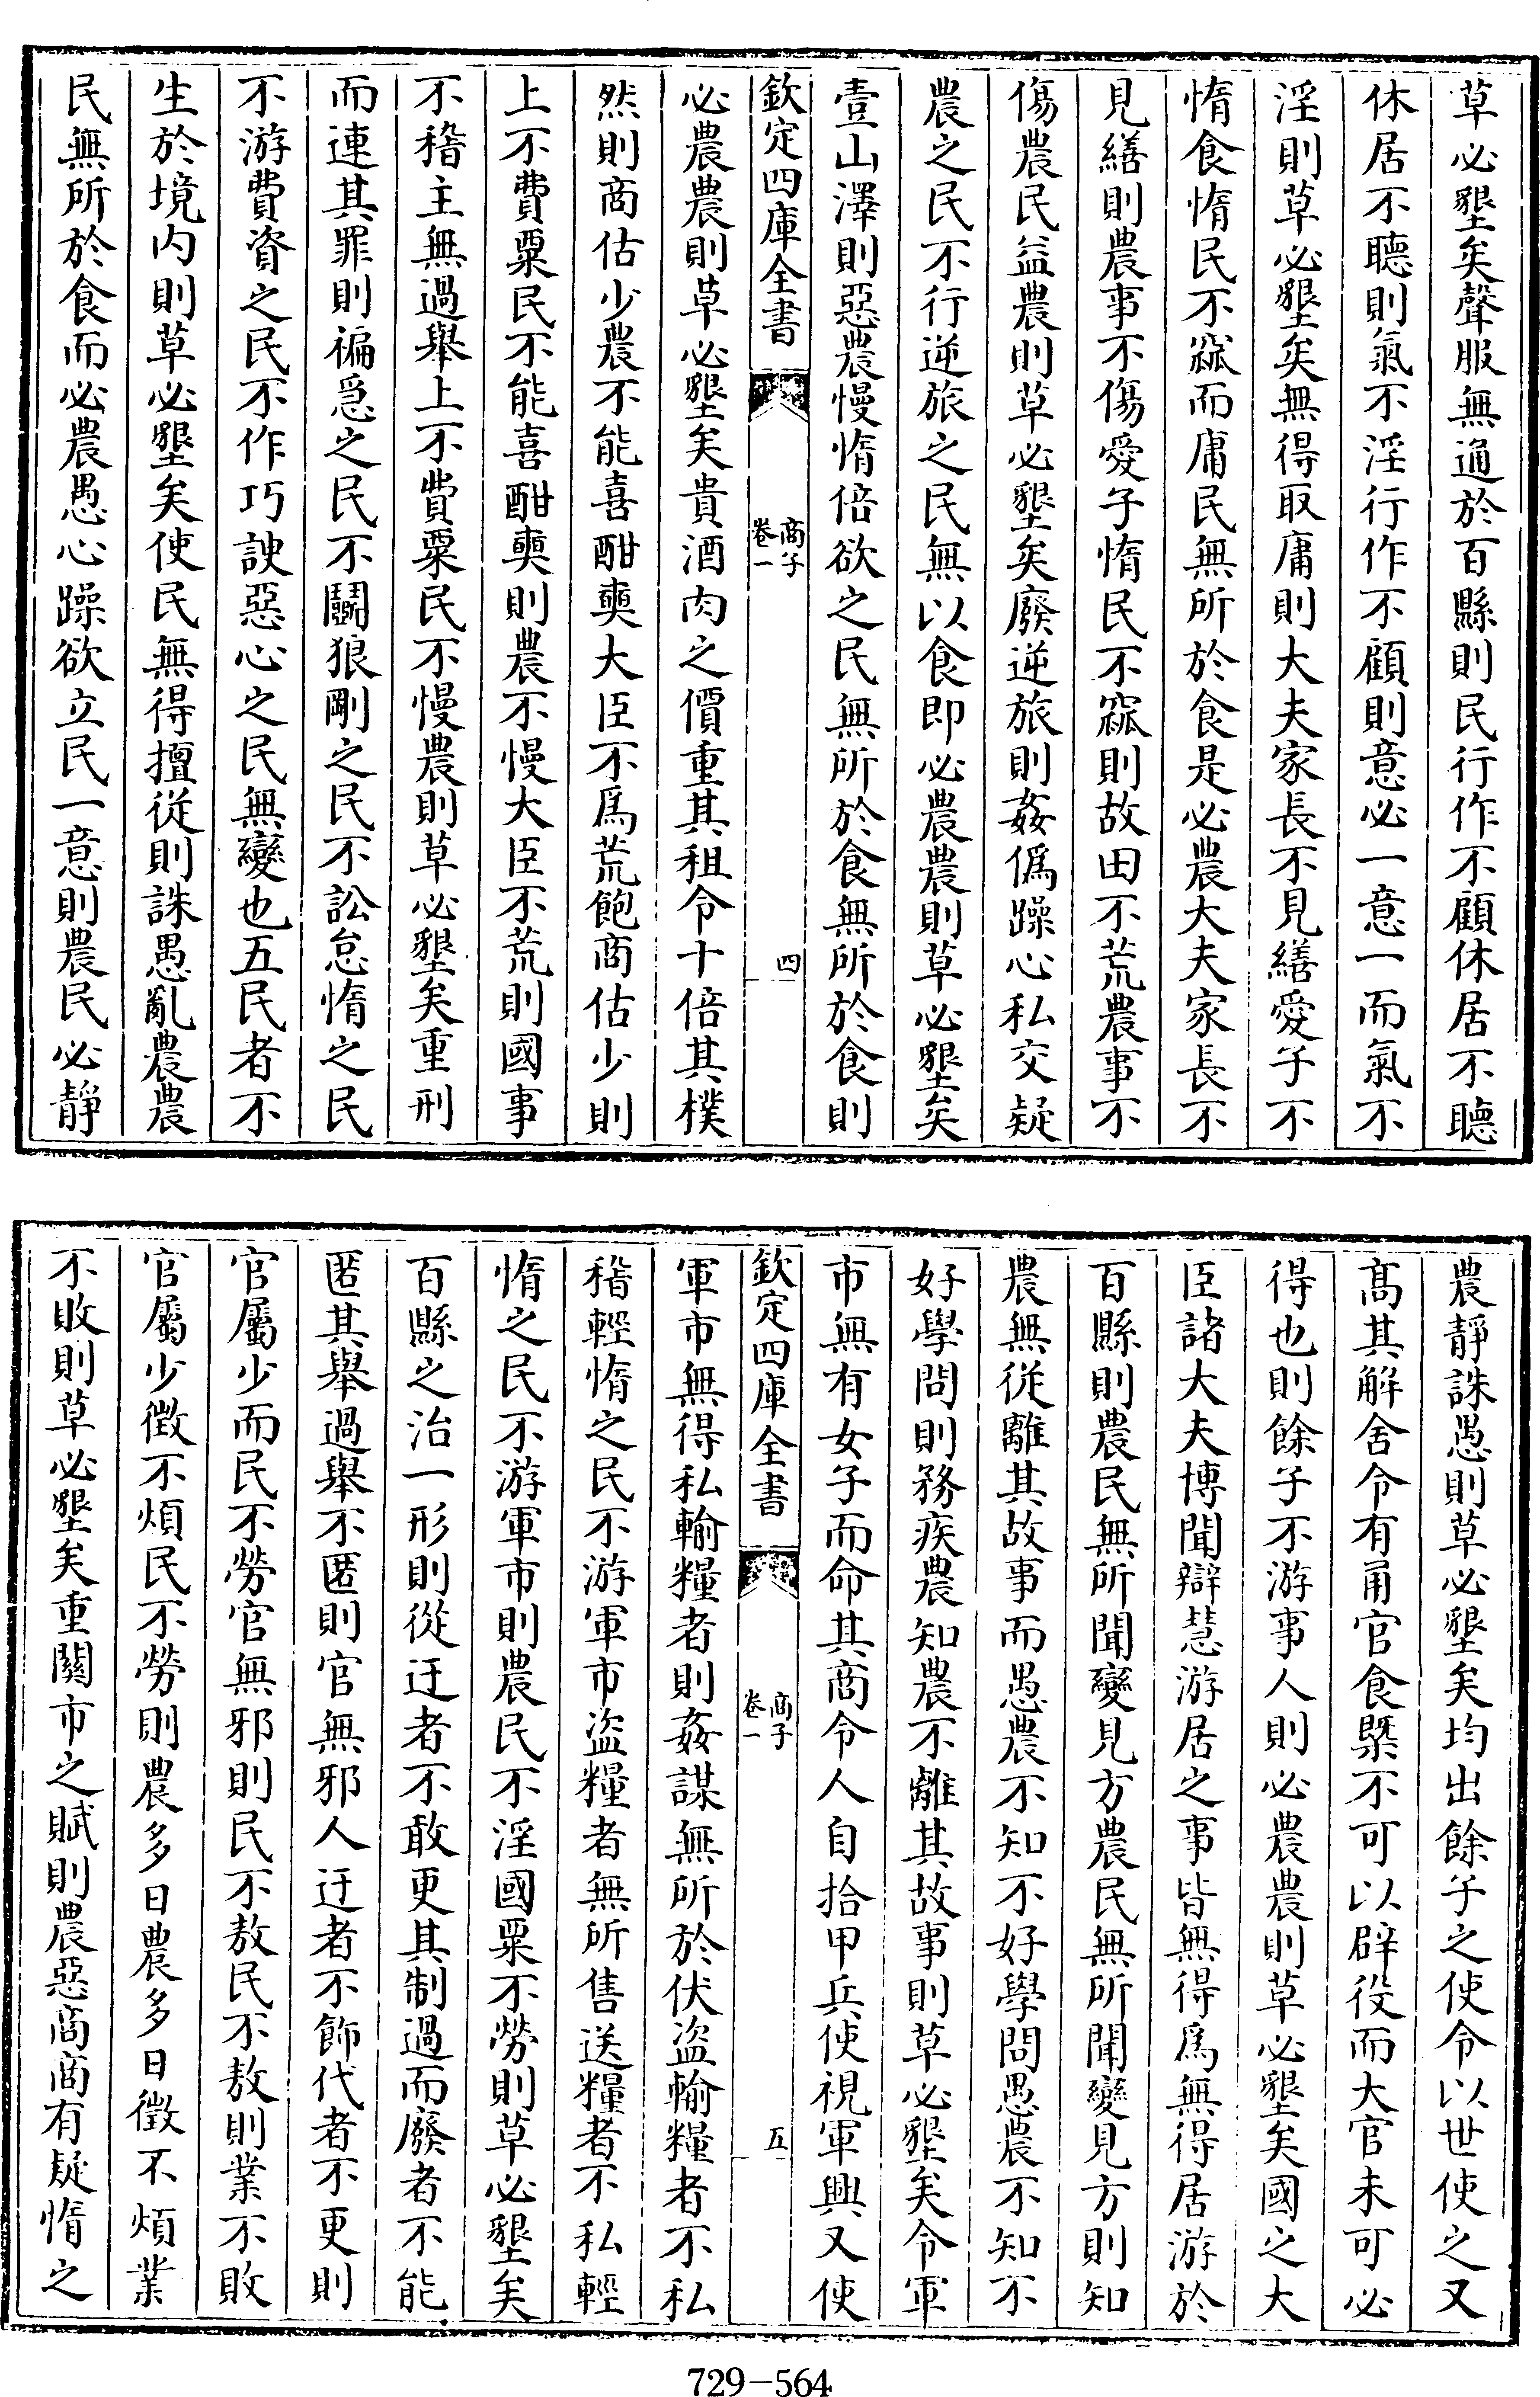 草必墾矣聲服無通於百縣則民行作不顧休居不聽
休居不聽則氣不淫行作不顧則意必一意一而氣不
淫則草必墾矣無得取庸則大夫家長不見繕愛子不
惰食惰民不窳而庸民無所於食是必農大夫家長不
見繕則農事不傷愛子惰民不窳則故田不荒農事不
傷農民益農則草必墾矣廢逆旅則姦僞躁心私交疑
農之民不行逆旅之民無以食即必農農則草必墾矣
壹山澤則惡農慢惰倍欲之民無所於食無所於食則
欽定四庫全書
商子
卷一
四
必農農則草必墾矣貴酒肉之價重其租令十倍其樸
然則商估少農不能喜酣奭大臣不爲荒飽商估少則
上不費粟民不能喜酣奭則農不慢大臣不荒則國事
不稽主無過舉上不費粟民不慢農則草必墾矣重刑
而連其罪則褊急之民不鬬狼剛之民不訟怠惰之民
不游費資之民不作巧諛惡心之民無變也五民者不
生於境内則草必墾矣使民無得擅徙則誅愚亂農農
民無所於食而必農愚心躁欲立民一意則農民必靜
農靜誅愚則草必墾矣均出餘子之使令以世使之又
髙其解舍令有甬官食槩不可以辟役而大官未可必
得也則餘子不游事人則必農農則草必墾矣國之大
臣諸大夫博聞辯慧游居之事皆無得爲無得居游於
百縣則農民無所聞變見方農民無所聞變見方則知
農無從離其故事而愚農不知不好學問愚農不知不
好學問則務疾農知農不離其故事則草必墾矣令軍
市無有女子而命其商令人自拾甲兵使視軍興又使
欽定四庫全書
商子
卷一
五
軍市無得私輸糧者則姦謀無所於伏盜輸糧者不私
稽輕惰之民不游軍市盜糧者無所售送糧者不私輕
惰之民不游軍市則農民不淫國粟不勞則草必墾矣
百縣之治一形則從迂者不敢更其制過而廢者不能
匿其舉過舉不匿則官無邪人迂者不飾代者不更則
官屬少而民不勞官無邪則民不敖民不敖則業不敗
官屬少徵不煩民不勞則農多日農多日徵不煩業
不敗則草必墾矣重關市之賦則農惡商商有疑惰之
729-564